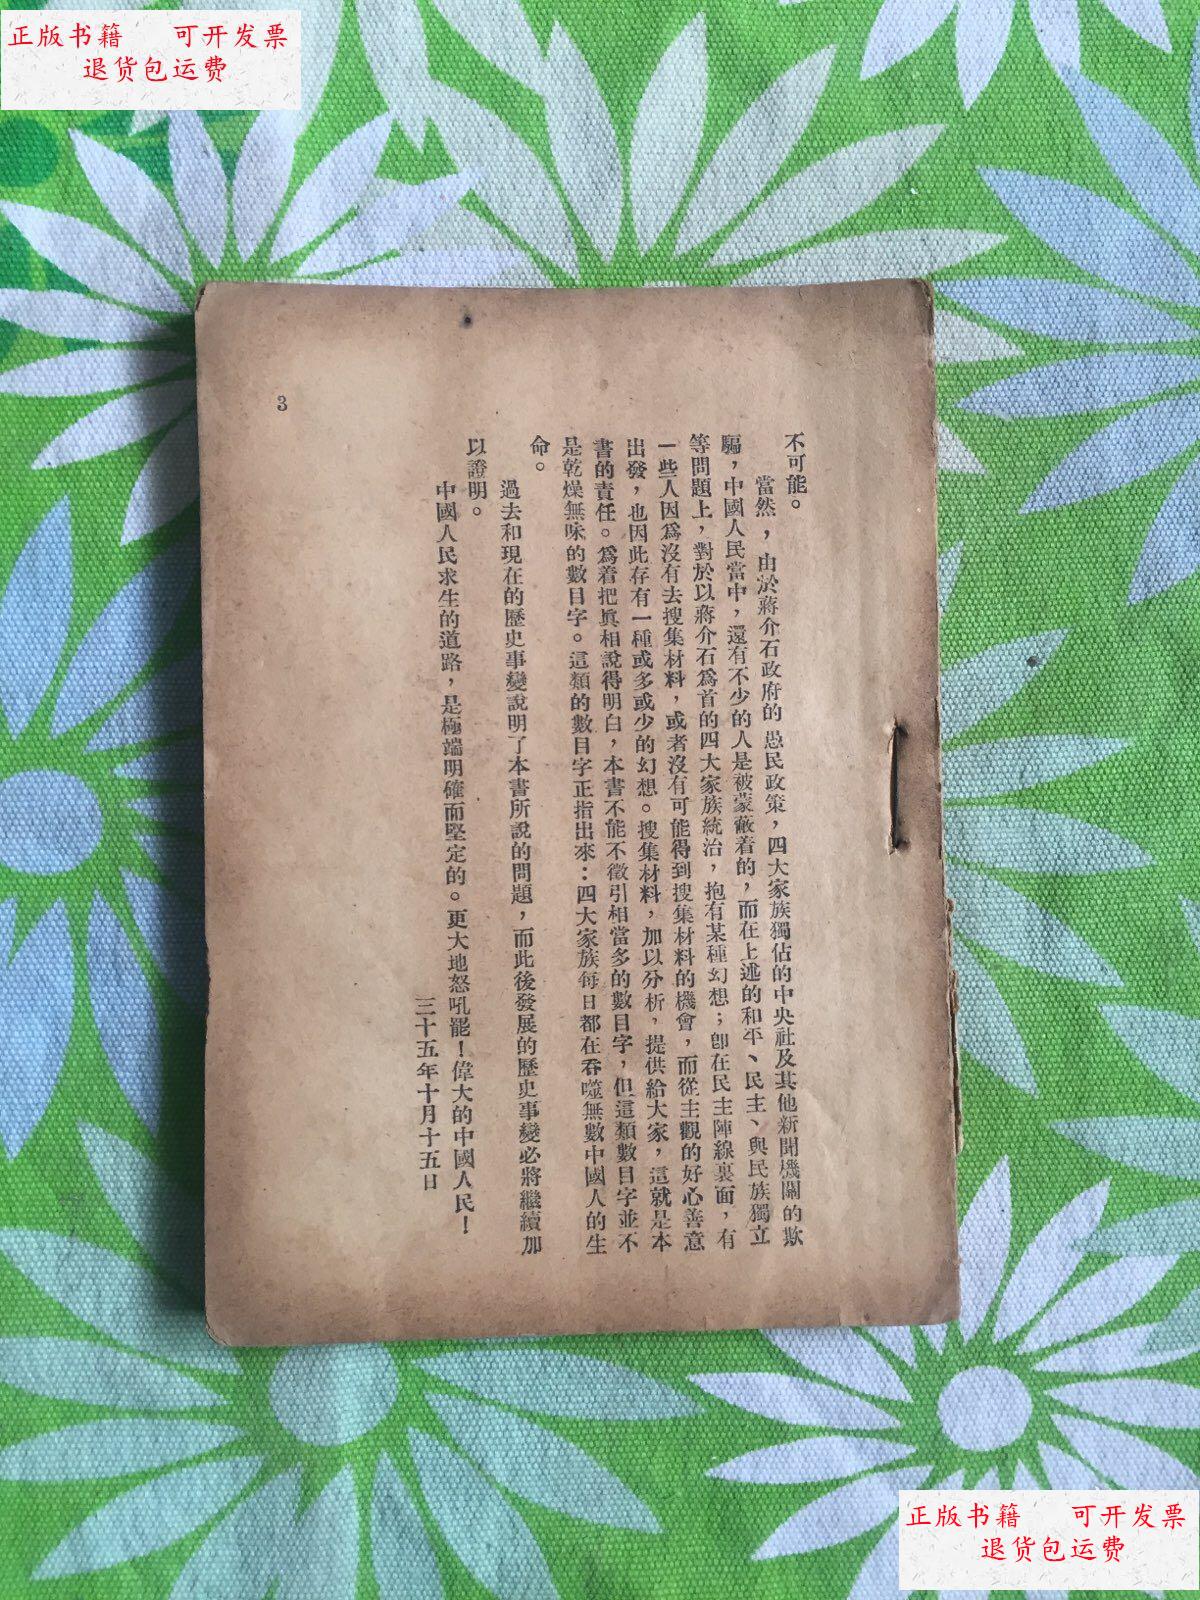 正版书籍 可开发票
退货包运费
不可能。
當然，由於蔣介石政府的愚民政策，四大家族獨佔的中央社及其他新聞機關的欺
騙，中國人民當中，還有不少的人是被蒙蔽着的，而在上述的和平、民主、與民族獨立
等問題上，對於以蔣介石爲首的四大家族統治，抱有某種幻想；卽在民主陣線裏面，有
一些人因爲沒有去搜集材料，或者沒有可能得到搜集材料的機會，而從主觀的好心善意
出發，也因此存有一種或多或少的幻想。搜集材料，加以分析，提供給大家，這就是本
書的責任。爲着把眞相說得明白，本書不能不徵引相當多的數目字，但這類數目字並不
是乾燥無味的數目字。這類的數目字正指出來：四大家族每日都在吞噬無數中國人的生
命。
過去和現在的歷史事變說明了本書所說的問題，而此後發展的歷史事變必將繼續加
以證明。
中國人民求生的道路，是極端明確而堅定的。更大地怒吼罷！偉大的中國人民！
三十五年十月十五日
3
正版书籍 可开发票
退货包运费